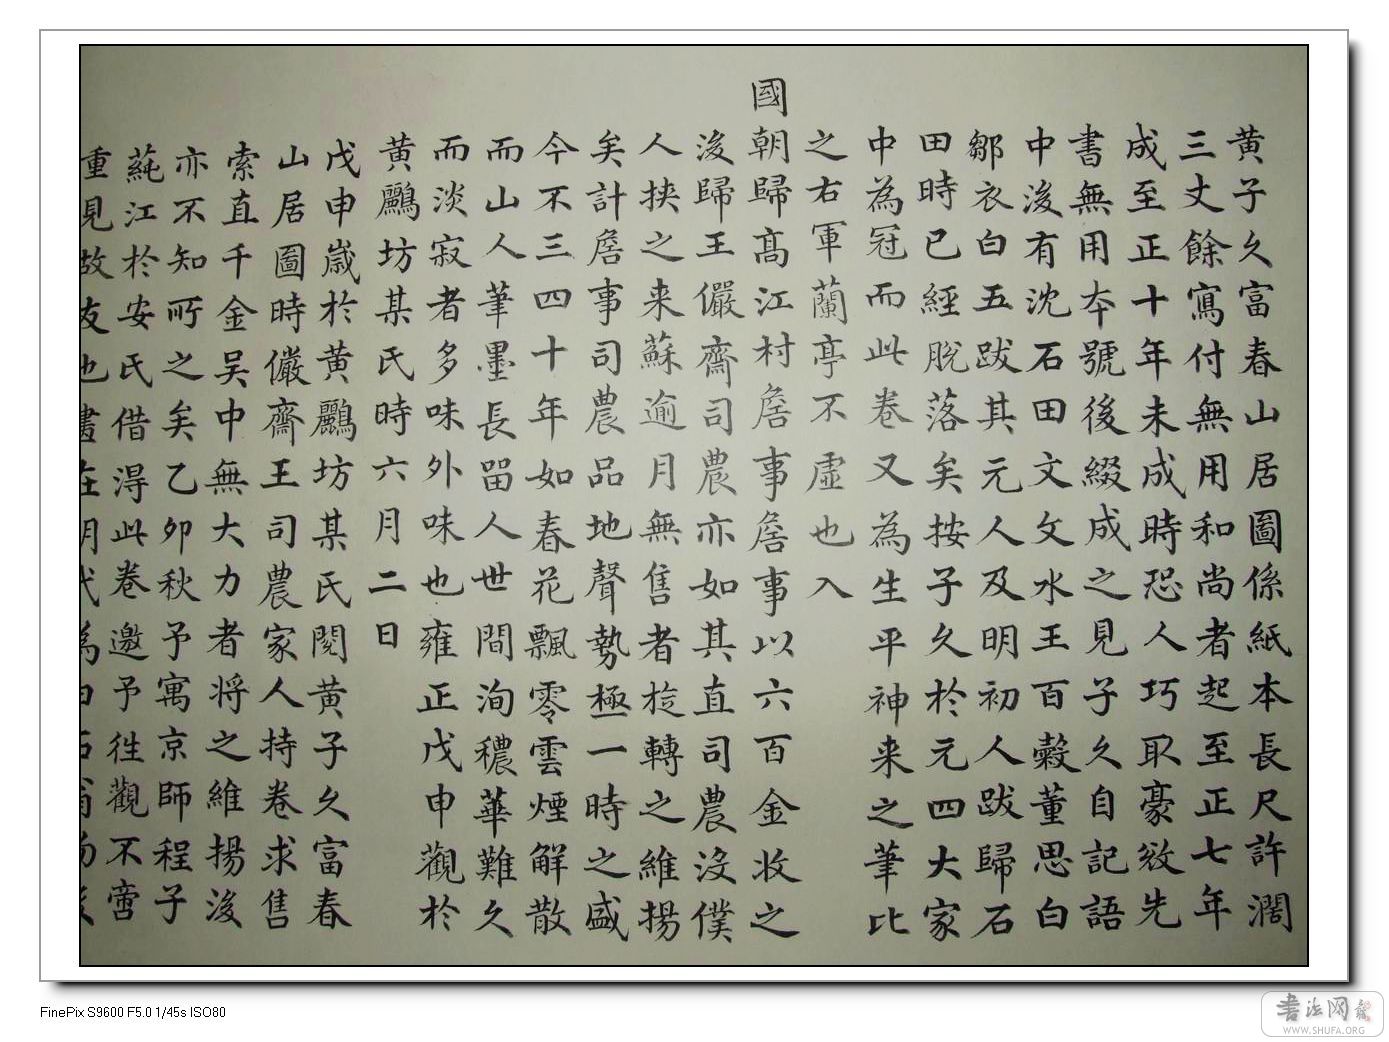 黄子久富春山居圖係紙本長尺許濶
三丈餘寫付無用和尚者起至正七年
成至正十年未成時恐人巧取豪欻先
書無用本號後綴成之見子久自記語
中後有沈石田文文水王百穀董思白
鄒衣白五跋其元人及明初人跋歸石
田時已經脫落矣按子久於元四大家
中為冠而此卷又為生平神来之筆比
之右軍蘭亭不虛也入
國朝歸髙江村詹事詹事以六百金收之
後歸王儼齋司農亦如其直司農沒僕
人挾之来蘇逾月無售者旋轉之維揚
矣計詹事司農品地聲勢極一時之盛
今不三四十年如春花飄零雲煙解散
而山人筆墨長留人世間洵穠華難久
而淡寂者多味外味也雍正戊申觀於
黄鸝坊某氏時六月二日
戊申嵗於黄鸝坊某氏閱黄子久富春
山居圖時儼齋王司農家人持卷求售
索直千金吴中無大力者将之維揚後
亦不知所之矣乙卯秋予寓京師程子
蒓江於安氏借得此卷邀予往觀不啻
重見故友也畫在明代為白石翁